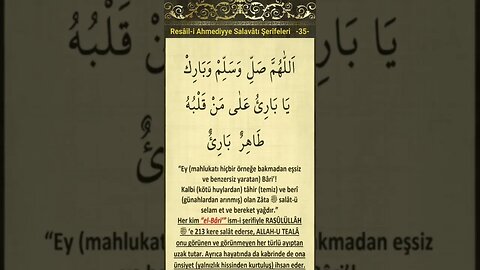 Resâil-i Ahmediyye Salavâtı Şerifeleri -35-
اَللّٰهُمَّ صَلِّ وَسَلِّمْ وَبَارِكْ
يَا بَارِئُ عَلٰى مَنْ قَلْبُهُ
طَاهِرٌ بَارِئٌ
“Ey (mahlukatı hiçbir örneğe bakmadan eşsiz
ve benzersiz yaratan) Bâri’!
Kalbi (kötü huylardan) tâhir (temiz) ve berî
(günahlardan arınmış) olan Zâta ﷺ salât-ü
selam et ve bereket yağdır.”
Her kim “el-Bâri’” ism-i şerifiyle RASÛLÜLLÂH
ﷺ ’e 213 kere salât ederse, ALLAH-U TEALÂ
onu görünen ve görünmeyen her türlü ayıptan
uzak tutar. Ayrıca hayatında da kabrinde de ona
ünsiyet (yalnızlık hissinden kurtuluş) ihsan eder.
“Ey (mah
n eşsiz